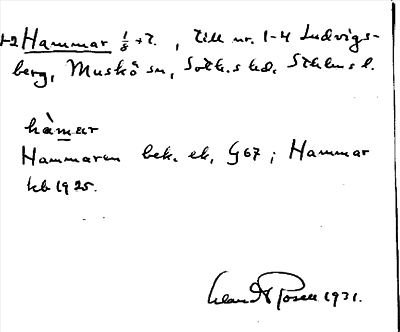 1-2 Hammar 1/8 +t. , till nr. 1-4 Ludvigs-
berg, Muskö sn, Soth.s hd. Sthlms l.
hàmar
Hammaren bek. ek. G67 ; Hammar
kb 1925.
1931.